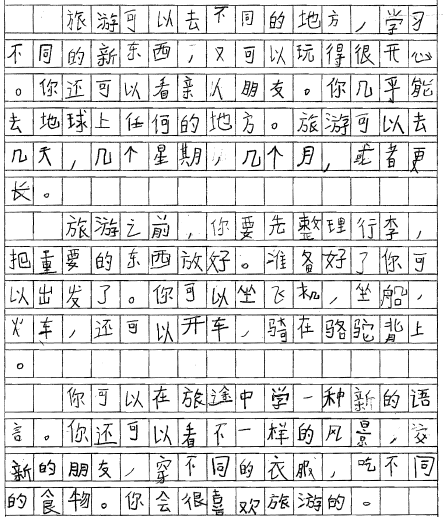 旅游可以去不同的地方，学习
不同的新东西，又可以玩得很开心
。你还可以看亲人朋友。你几乎能
去地球上任何的地方。旅游可以去
几天，几个星期，几个月，或者更
长。
旅游之前，你要先整理行李，
把重要的东西放好。准备好了你可
以出发了。你可以坐飞机，坐船，
火车，还可以开车，骑在骆驼背上
。
你可以在旅途中学一种新的语
言。你还可以看不一样的风景，交
新的朋友，穿不同的衣服，吃不同
的食物。你会很喜欢旅游的。